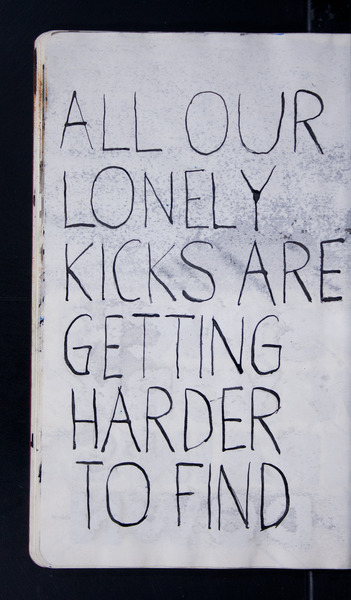 ALL OUR
LONELY
KICKS ARE
GETTING
HARDER
TO FIND